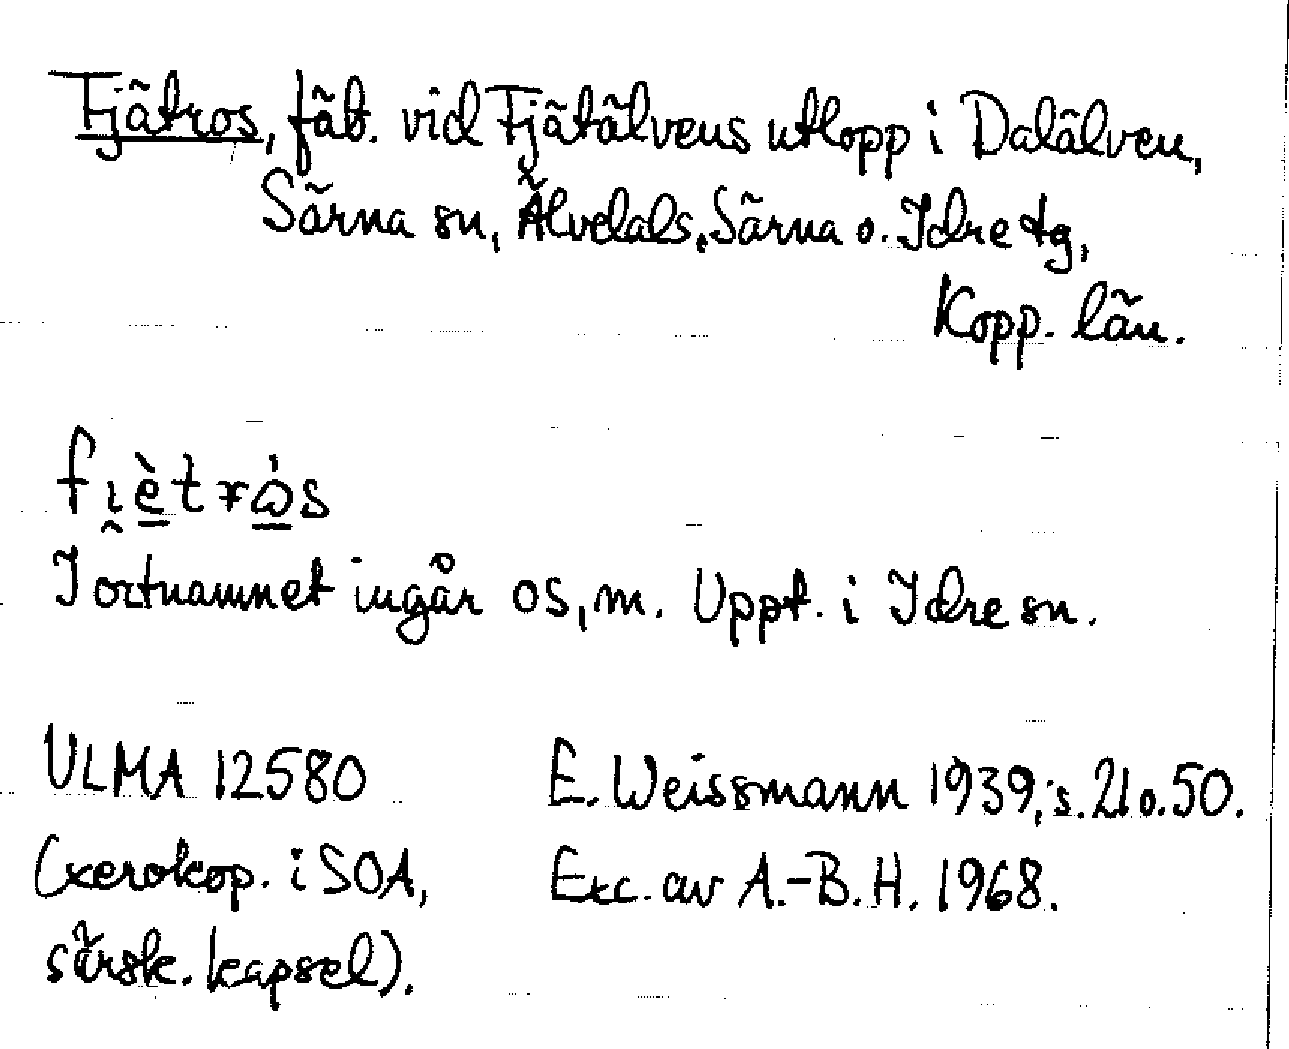 Fjätros, fäb. vid Fjätälvens utlopp i Dalälven,
Särna sn, Älvdals, Särna o. Idre tg,
Kopp. län.
fi̯è̠trώ̠s
I ortnamnet ingår os, m. Uppt. i Idre sn.
ULMA 12580 E. Weissmann 1939, s. 21 o. 50.
(xerokop. i SOA, Exc. av A.-B. H. 1968.
särsk. kapsel).